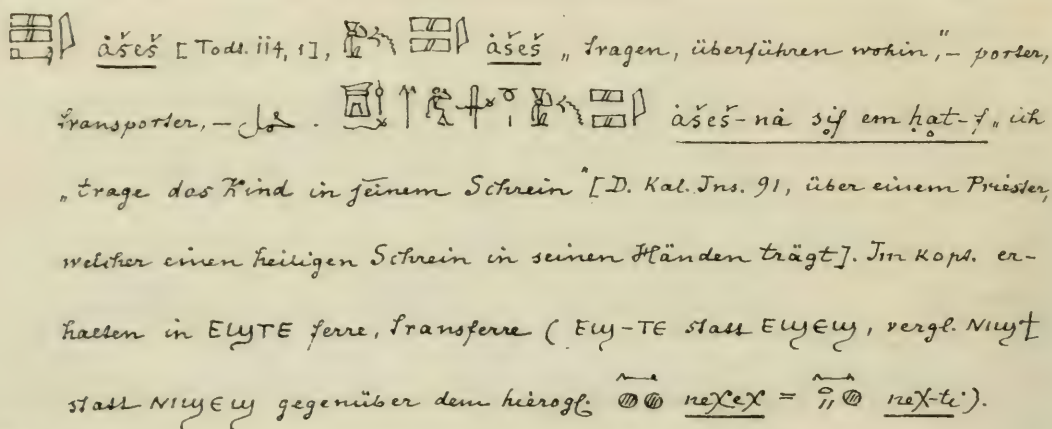 ȧšeš [Todt. 114, 1], ȧšeš „tragen, überführen wohin," – porter,
transporter, – حمل . ȧšeš-nȧ sif em ḥat-f „ich
„trage das Kind in seinem Schrein" [D. Kal. Ins. 91, über einem Priester,
welcher einen heiligen Schrein in seinen Händen trägt]. Im Kopt. er-
halten in ⲈϢⲦⲈ ferre, transferre (ⲈϢ-ⲦⲈ statt ⲈϢⲈϢ, vergl. ⲚⲒϢϮ
statt ⲚⲒϢⲈϢ gegenüber dem hierogl. neχeχ = neχ-ti).